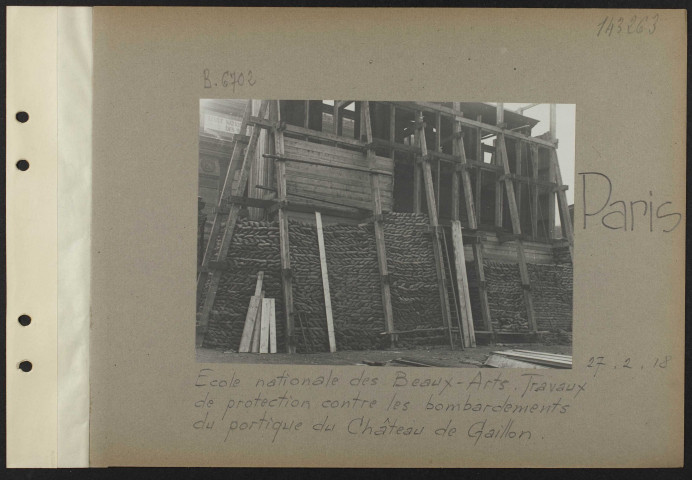 143263
B. 6702
Paris
27. 2. 18
Ecole nationale des Beaux-Arts. Travaux
de protection contre les bombardements
du portique du Château de Gaillon.